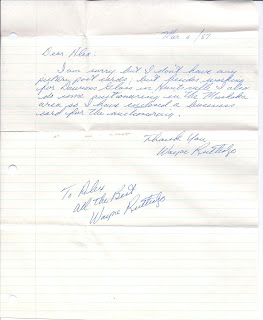 Mar 6/87
Dear Alex:
I am sorry but I don't have any
picture post cards, but besides working
for Dawsons Glass in Huntsville I also
do some auctioneering in the Muskoka
area so I have enclosed a business
card for the auctioneering.
Thank You,
Wayne Rutledge
To Alex
all the Best
Wayne Rutledge